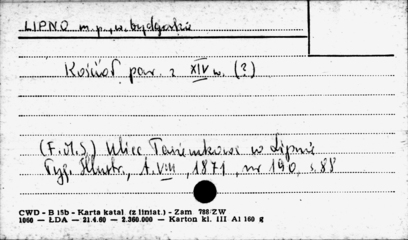 LIPNO m. p., w. bydgoskie
Kościół par. z XIV w. (?)
(F.M.S.) Ulica Tanemkowa w Lipnie
Tyg. Illustr., t. VIII, 1871, nr 190, s. 88
CWD - B 15b - Karta katal (z liniat.) - Zam 788/ZW
1066 — ŁDA — 21.4.60 — 2.360.000 — Karton kl. III A1 160 g